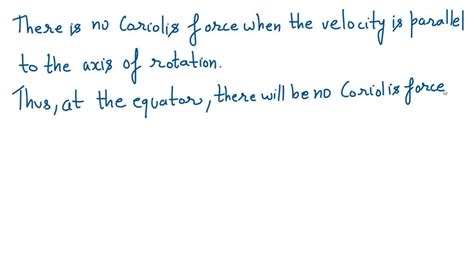 There is no Coriolis force when the velocity is parallel
to the axis of rotation.
Thus, at the equator, there will be no Coriolis force